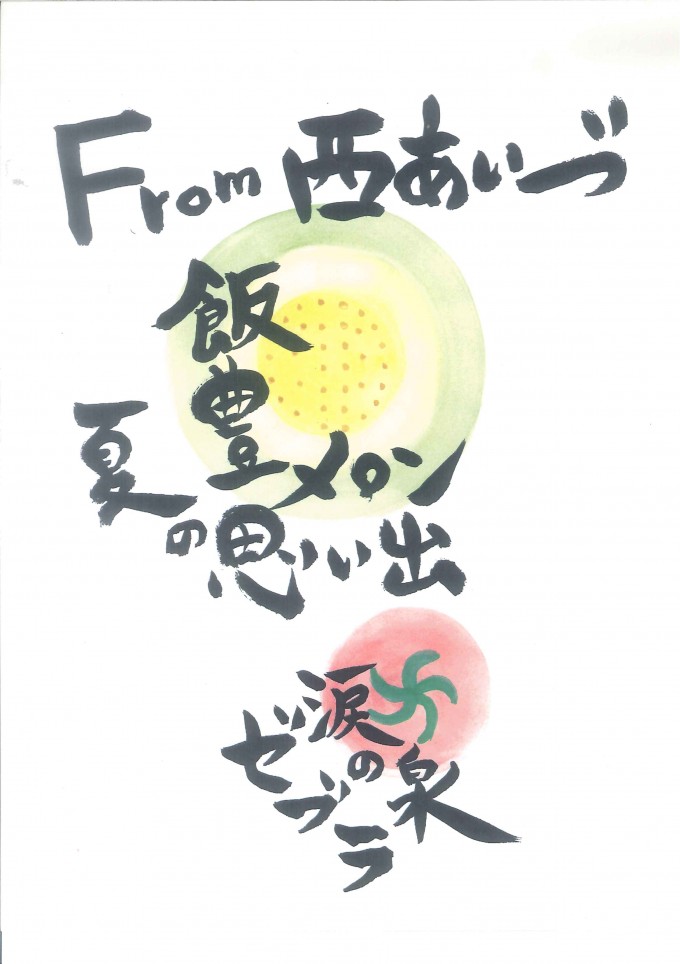 From 西あいづ
飯豊メロン
夏の思い出
涙の泉
ゼブラ